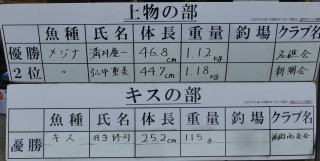 上物の部
魚種 氏名 体長 重量 釣場 クラブ名
優勝 メジナ 満井慶一 46.8cm 1.12kg 名礁会
2位 〃 弘中重美 44.7cm 1.18kg 新潮会
キスの部
魚種 氏名 体長 重量 釣場 クラブ名
優勝 キス 修司 25.2cm 115g 会